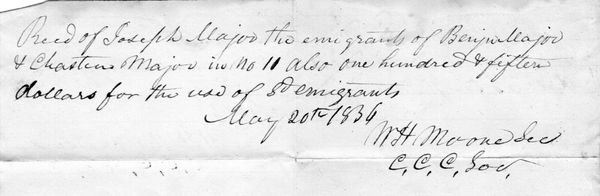 Recd of Joseph Major the emigrants of Benjn Major
& Chastine Major in no 11 also one hundred & fifteen
dollars for the use of Sd emigrants
May 20th 1836
WH Moone Sec
C. C. C. Soc.